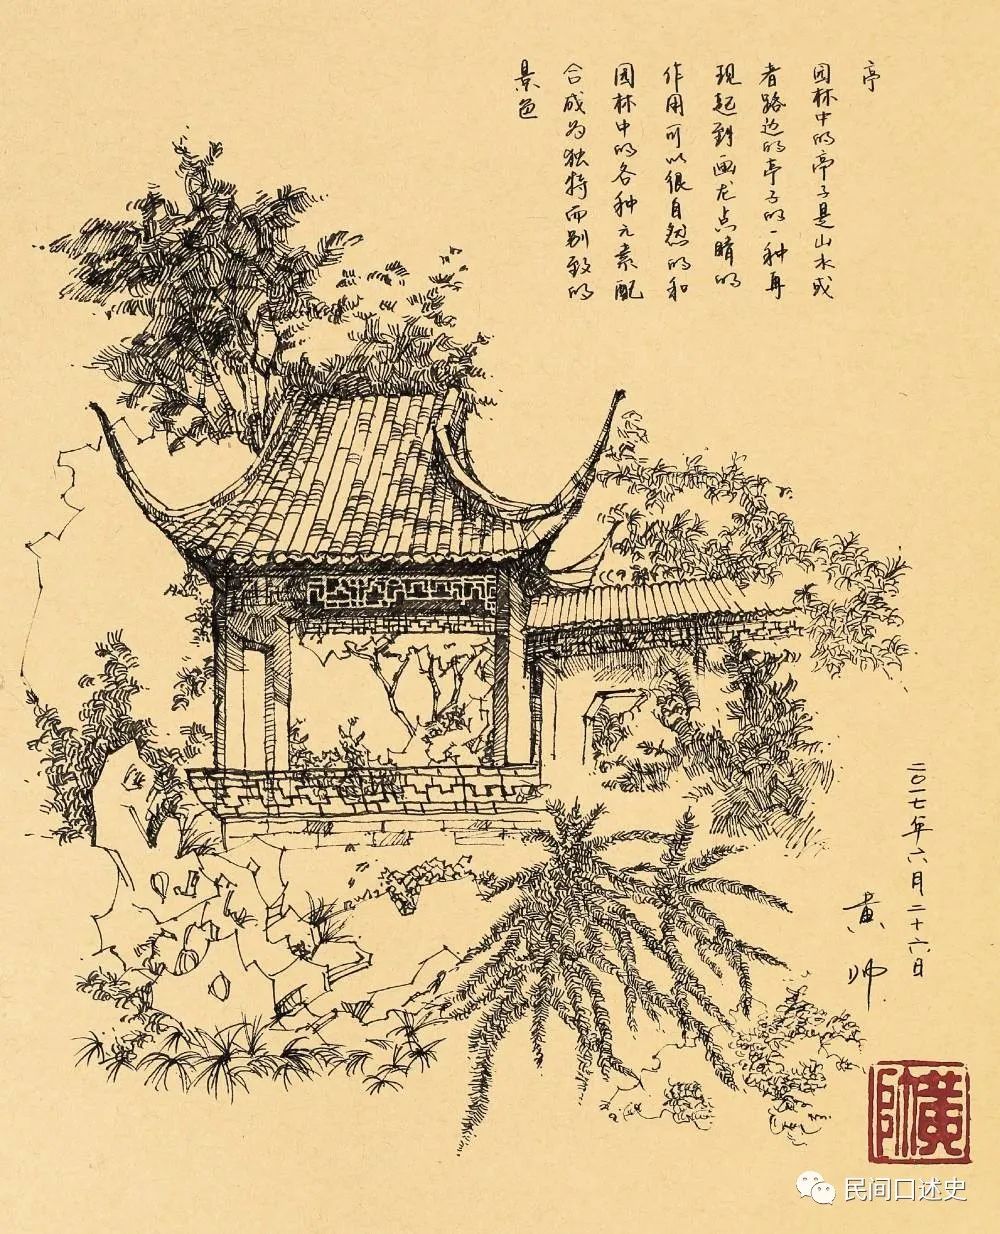 亭
园林中的亭子是山水或
者路边的亭子的一种再
现起到画龙点睛的
作用可以很自然的和
园林中的各种元素配
合成为独特而别致的
景色
二〇一七年六月二十六日
黄帅
黄帥
民间口述史